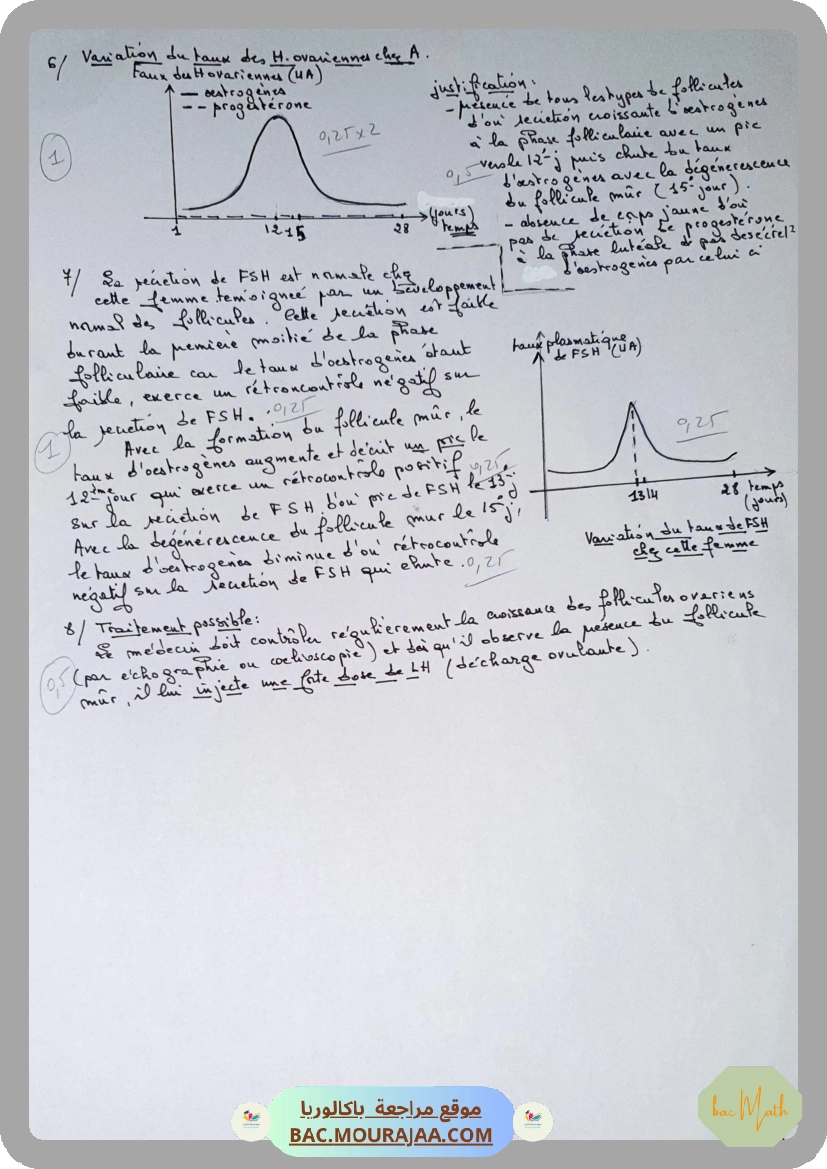 6/ Variation du taux des H. ovariennes chez A.
Taux des H ovariennes (UA)
— œstrogènes
-- progestérone
0,25 x 2
1
1
12
15
28
(jours)
temps
justification :
- présence de tous les types de follicules
d'où sécrétion croissante d'œstrogènes
à la phase folliculaire avec un pic
vers le 12è j puis chute du taux
0,5
d'œstrogènes avec la dégénérescence
du follicule mûr (15è jour).
- absence de corps jaune d'où
pas de sécrétion de progestérone
à la phase lutéale et pas de sécrét°
d'œstrogènes par celui ci
7/ La sécrétion de FSH est normale chez
cette femme temoignée par un développement
normal des follicules. Cette sécrétion est faible
durant la première moitié de la phase
folliculaire car le taux d'œstrogènes étant
faible, exerce un rétrocontrôle négatif sur
la sécrétion de FSH. 0,25
1
Avec la formation du follicule mûr, le
taux d'œstrogènes augmente et décrit un pic le
12ème jour qui exerce un rétrocontrôle positif 0,25
sur la sécrétion de FSH d'où pic de FSH le 13è j
Avec la dégénérescence du follicule mur le 15è j,
le taux d'œstrogènes diminue d'où rétrocontrôle
négatif sur la sécrétion de FSH qui chute. 0,25
taux plasmatique
de FSH (UA)
0,25
13 14
28
temps
(jours)
Variation du taux de FSH
chez cette femme
8/ Traitement possible:
Le médecin doit contrôler régulièrement la croissance des follicules ovariens
(par échographie ou cœlioscopie) et dès qu'il observe la présence du follicule
0,5
mûr, il lui injecte une forte dose de LH (décharge ovulante).
موقع مراجعة باكالوريا
BAC.MOURAJAA.COM
bac Math